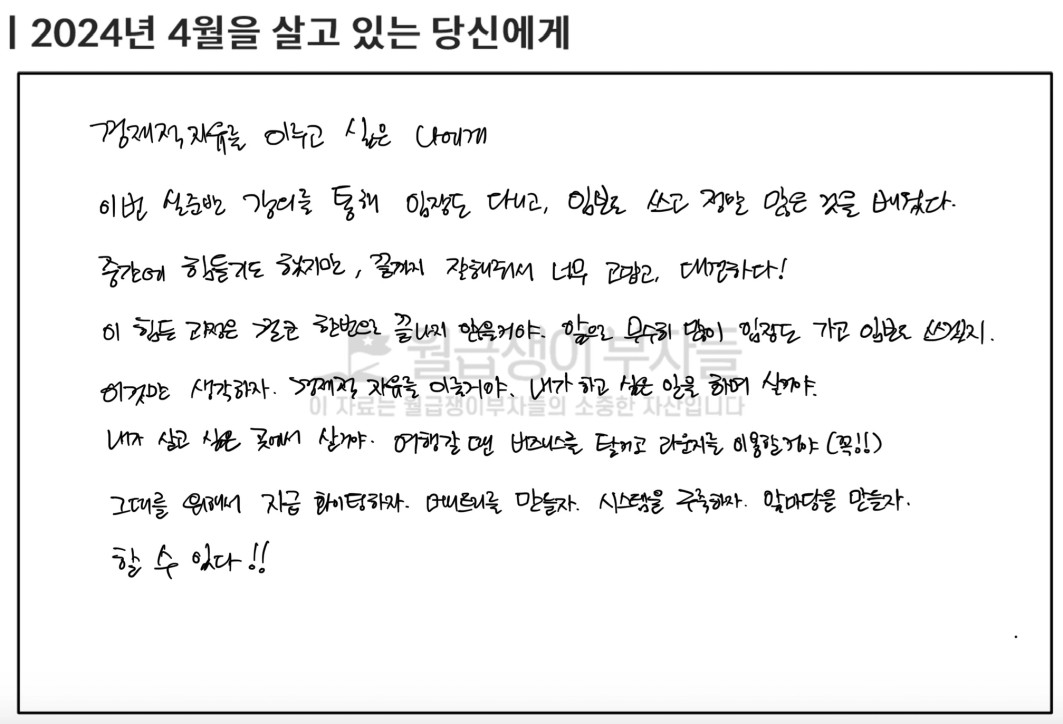 2024년 4월을 살고 있는 당신에게
경제적 자유를 이루고 싶은 나에게
이번 실준반 강의를 통해 임장도 다니고, 임보도 쓰고 정말 많은 것을 배웠다.
중간에 힘들기도 했지만, 끝까지 잘해줘서 너무 고맙고, 대견하다!
이 힘든 과정은 결코 한번으로 끝나지 않을거야. 앞으로 무수히 많이 임장도 가고 임보도 쓰겠지.
월급쟁이부자들
이것만 생각하자. 경제적 자유를 이룰거야. 내가 하고 싶은 일을 하며 살거야.
이 자료는 월급쟁이부자들의 소중한 자산입니다
내가 살고 싶은 곳에서 살거야. 여행갈 땐 비즈니스를 타고 라운지를 이용할거야 (꼭!!)
그때를 위해서 지금 화이팅하자. 만들자. 시스템을 구축하자. 앞마당을 만들자.
할 수 있다!!